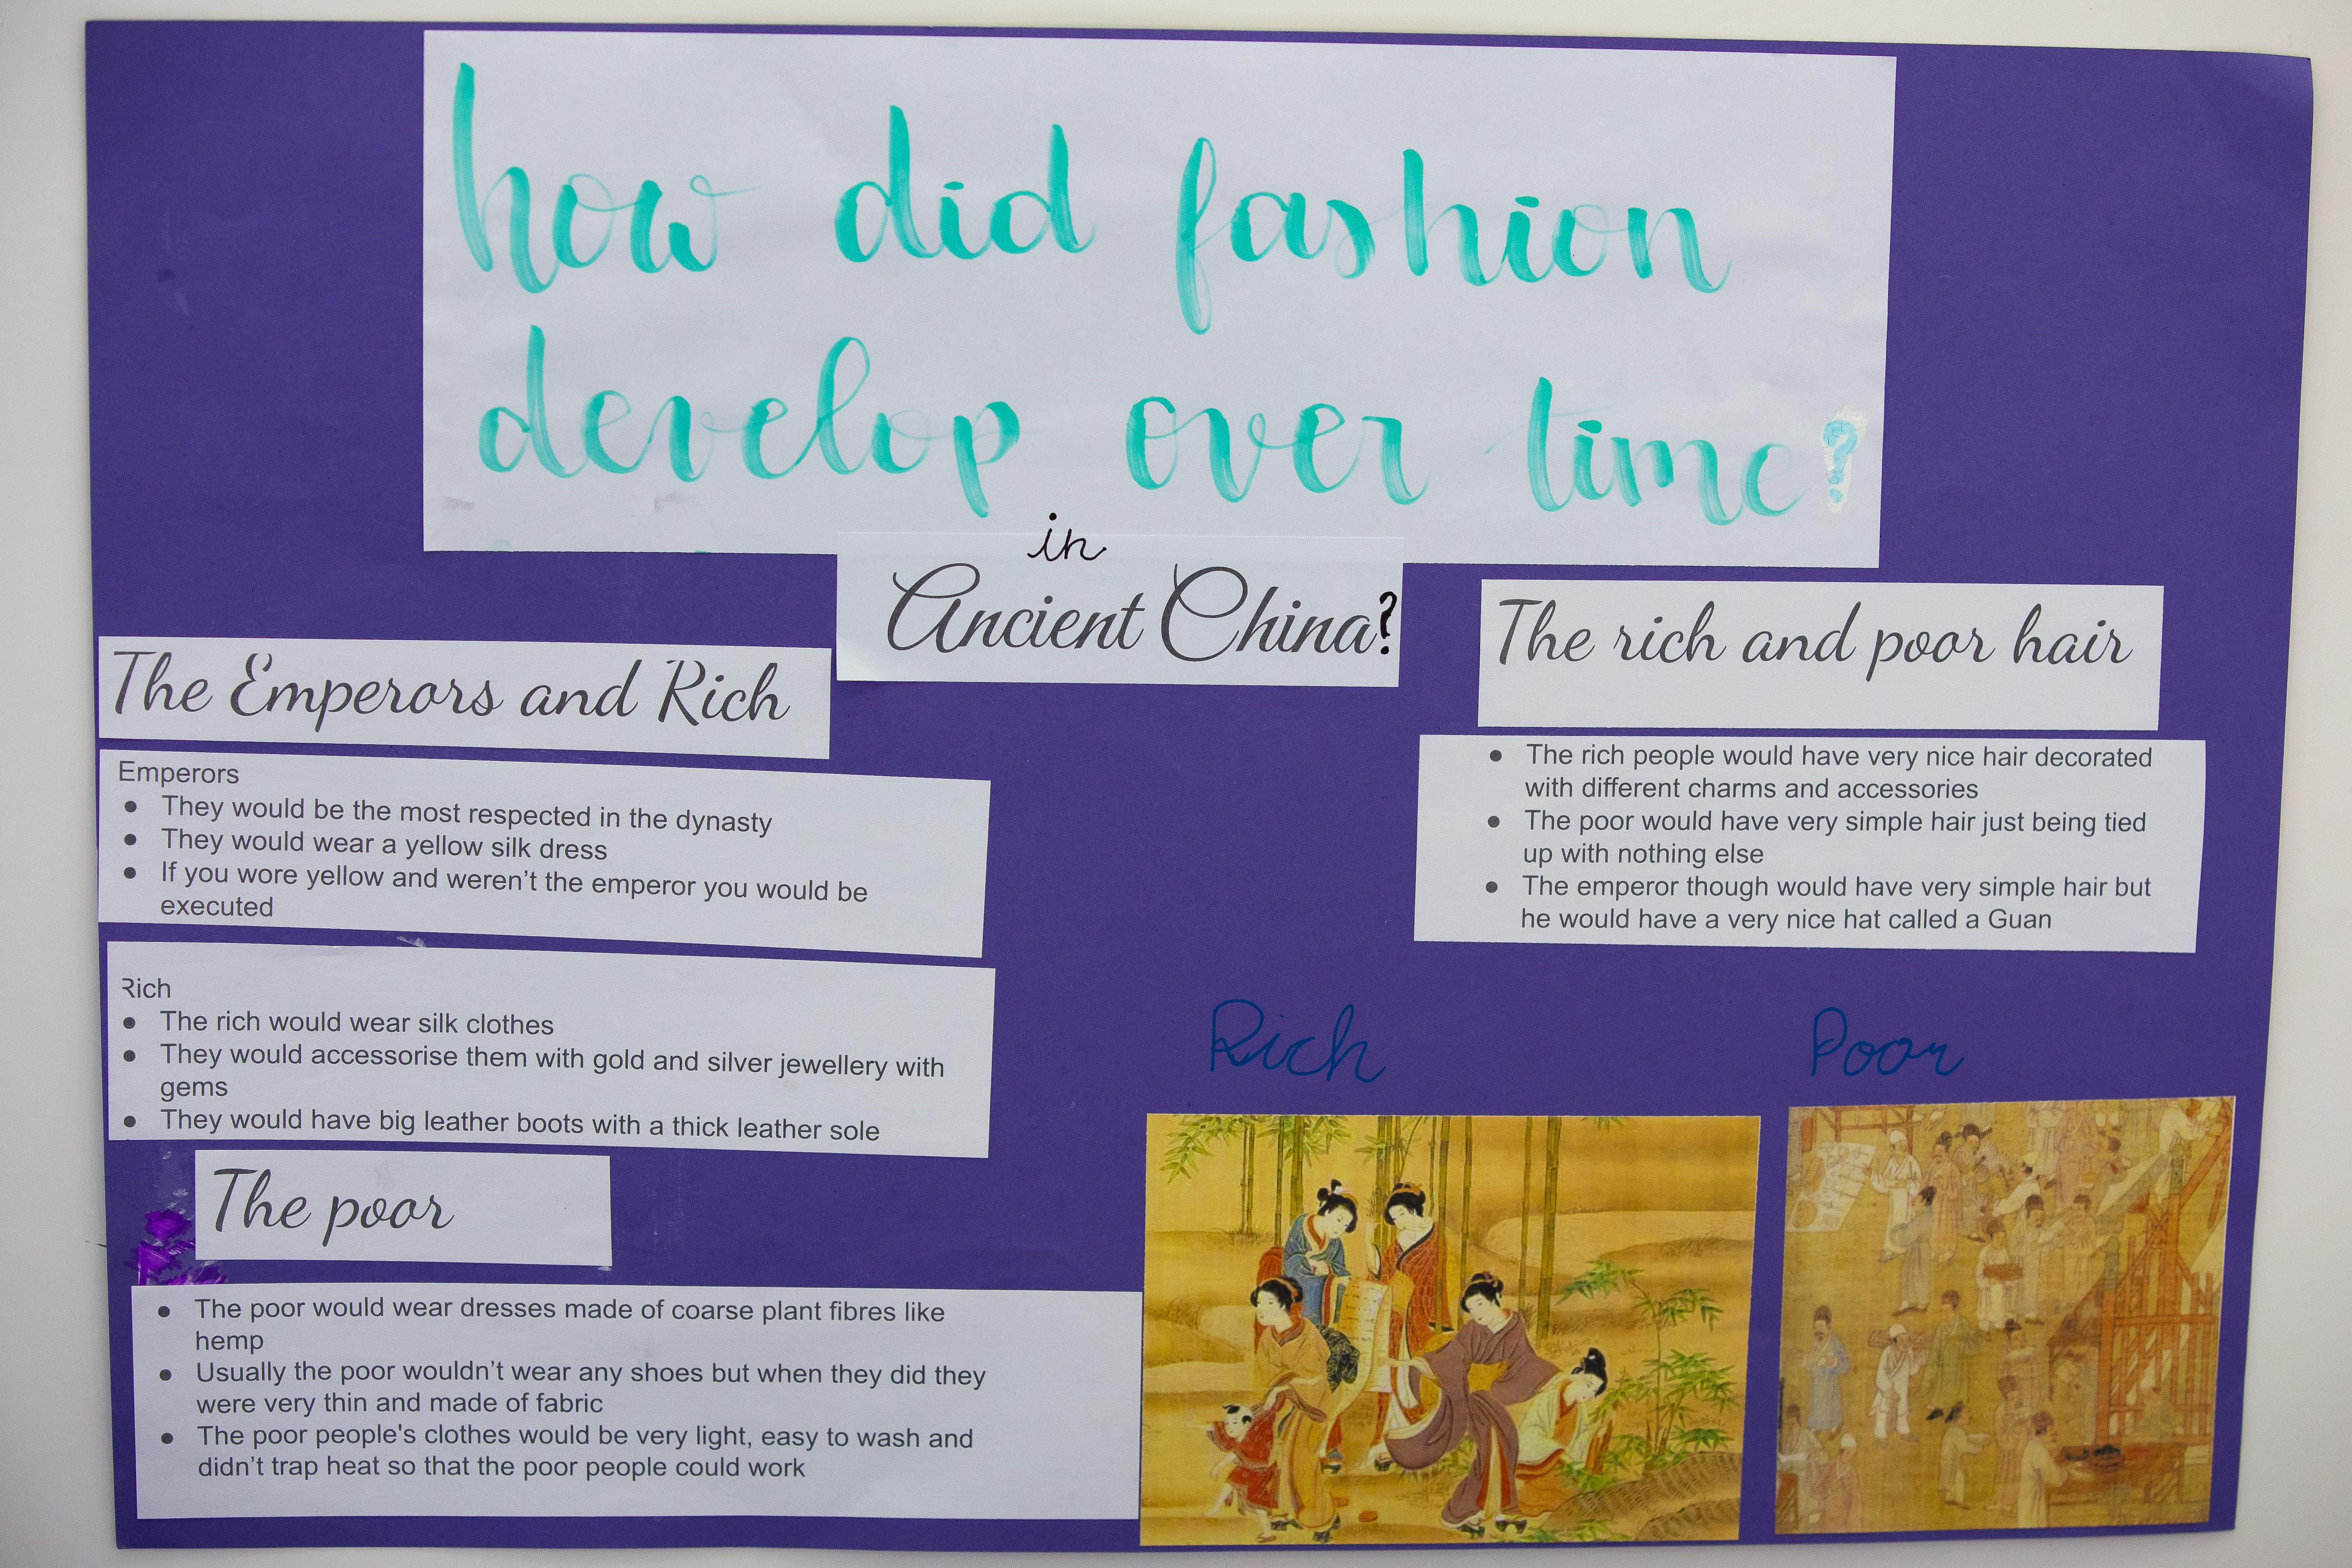 how did fashion
develop over time?
in
Ancient China?
The Emperors and Rich
Emperors
● They would be the most respected in the dynasty
● They would wear a yellow silk dress
● If you wore yellow and weren't the emperor you would be
executed
Rich
● The rich would wear silk clothes
● They would accessorise them with gold and silver jewellery with
gems
● They would have big leather boots with a thick leather sole
The poor
● The poor would wear dresses made of coarse plant fibres like
hemp
● Usually the poor wouldn't wear any shoes but when they did they
were very thin and made of fabric
● The poor people's clothes would be very light, easy to wash and
didn't trap heat so that the poor people could work
The rich and poor hair
● The rich people would have very nice hair decorated
with different charms and accessories
● The poor would have very simple hair just being tied
up with nothing else
● The emperor though would have very simple hair but
he would have a very nice hat called a Guan
Rich
Poor